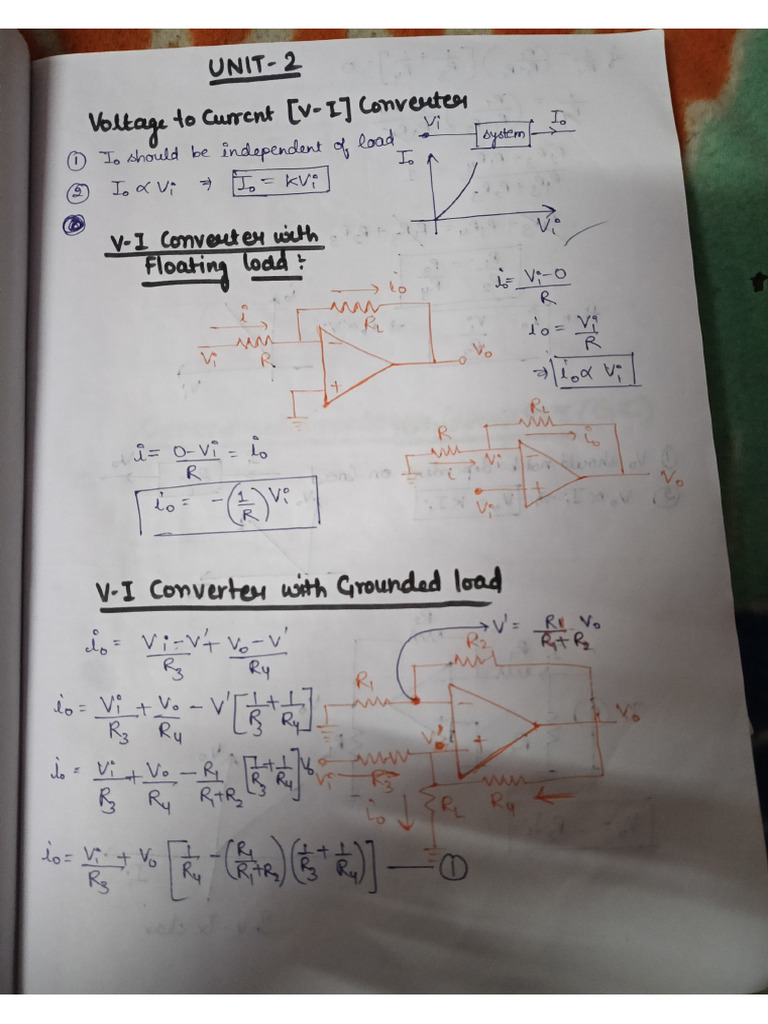 UNIT-2
Voltage to Current [V-I] Converter
① I₀ should be independent of load
② I₀ ∝ Vi ⇒ I₀ = KVi
Vi system I₀
I₀
Vi
V-I Converter with
Floating load:
i i₀
Vi R RL V₀
- +
i₀ = Vi-0/R
i₀ = Vi/R
⇒ i₀ ∝ Vi
i = 0-Vi/R = i₀
i₀ = -(1/R)Vi
RL
R i₀
i Vi - V₀
Vi +
V-I Converter with Grounded load
i₀ = Vi-V'/R3 + V₀-V'/R4
i₀ = Vi/R3 + V₀/R4 - V'[1/R3 + 1/R4]
i₀ = Vi/R3 + V₀/R4 - R1/R1+R2 [1/R3 + 1/R4] V₀
i₀ = Vi/R3 + V₀[1/R4 - (R1/R1+R2)(1/R3 + 1/R4)] — ①
V' = R1/R1+R2 V₀
R2
R1
- V₀
V' +
Vi R3
i₀ RL R4